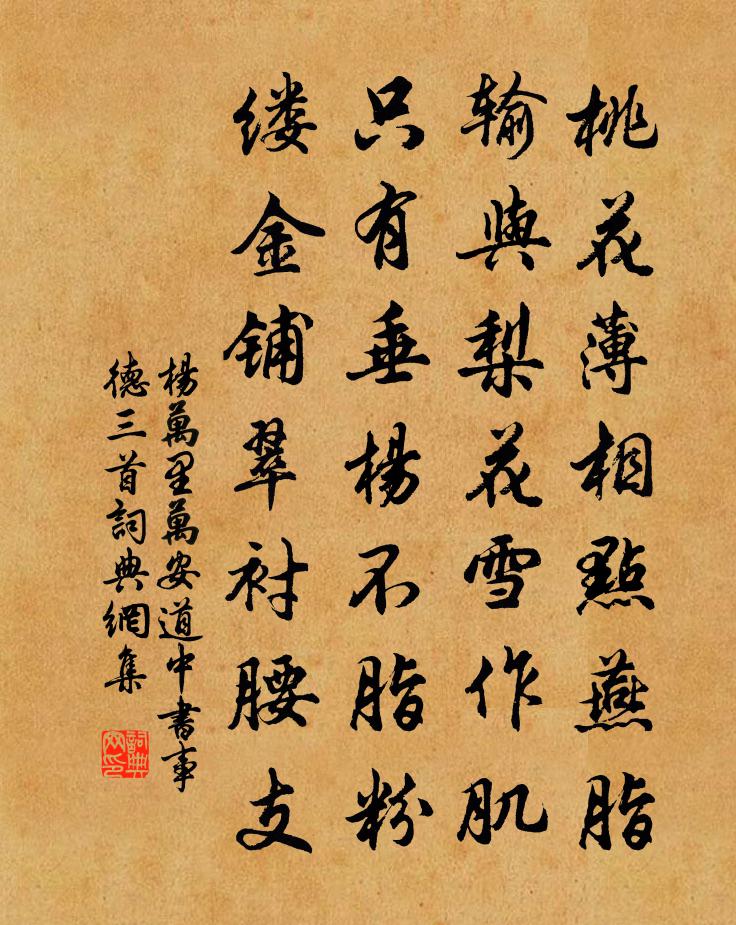 桃花薄相點燕脂
輸與梨花雪作肌
只有垂楊不脂粉
缕金铺翠衬腰支
楊萬里萬安道中書事
德三首詞典網集
詞典網印